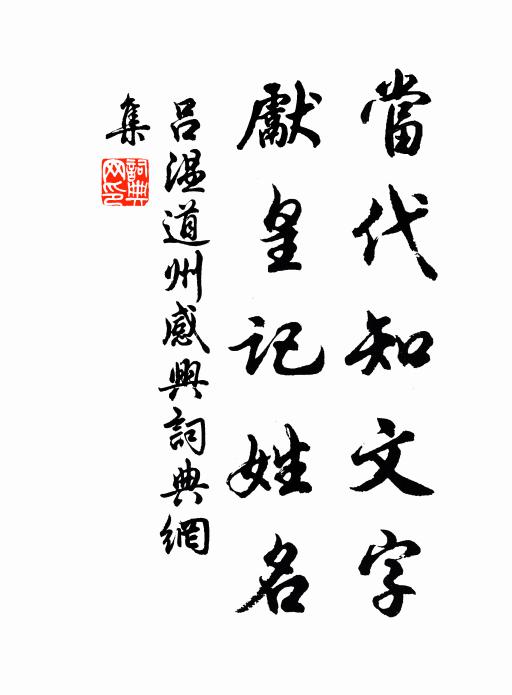 當代知文字
獻皇記姓名
吕溫道州感興詞典網
集
詞典網印